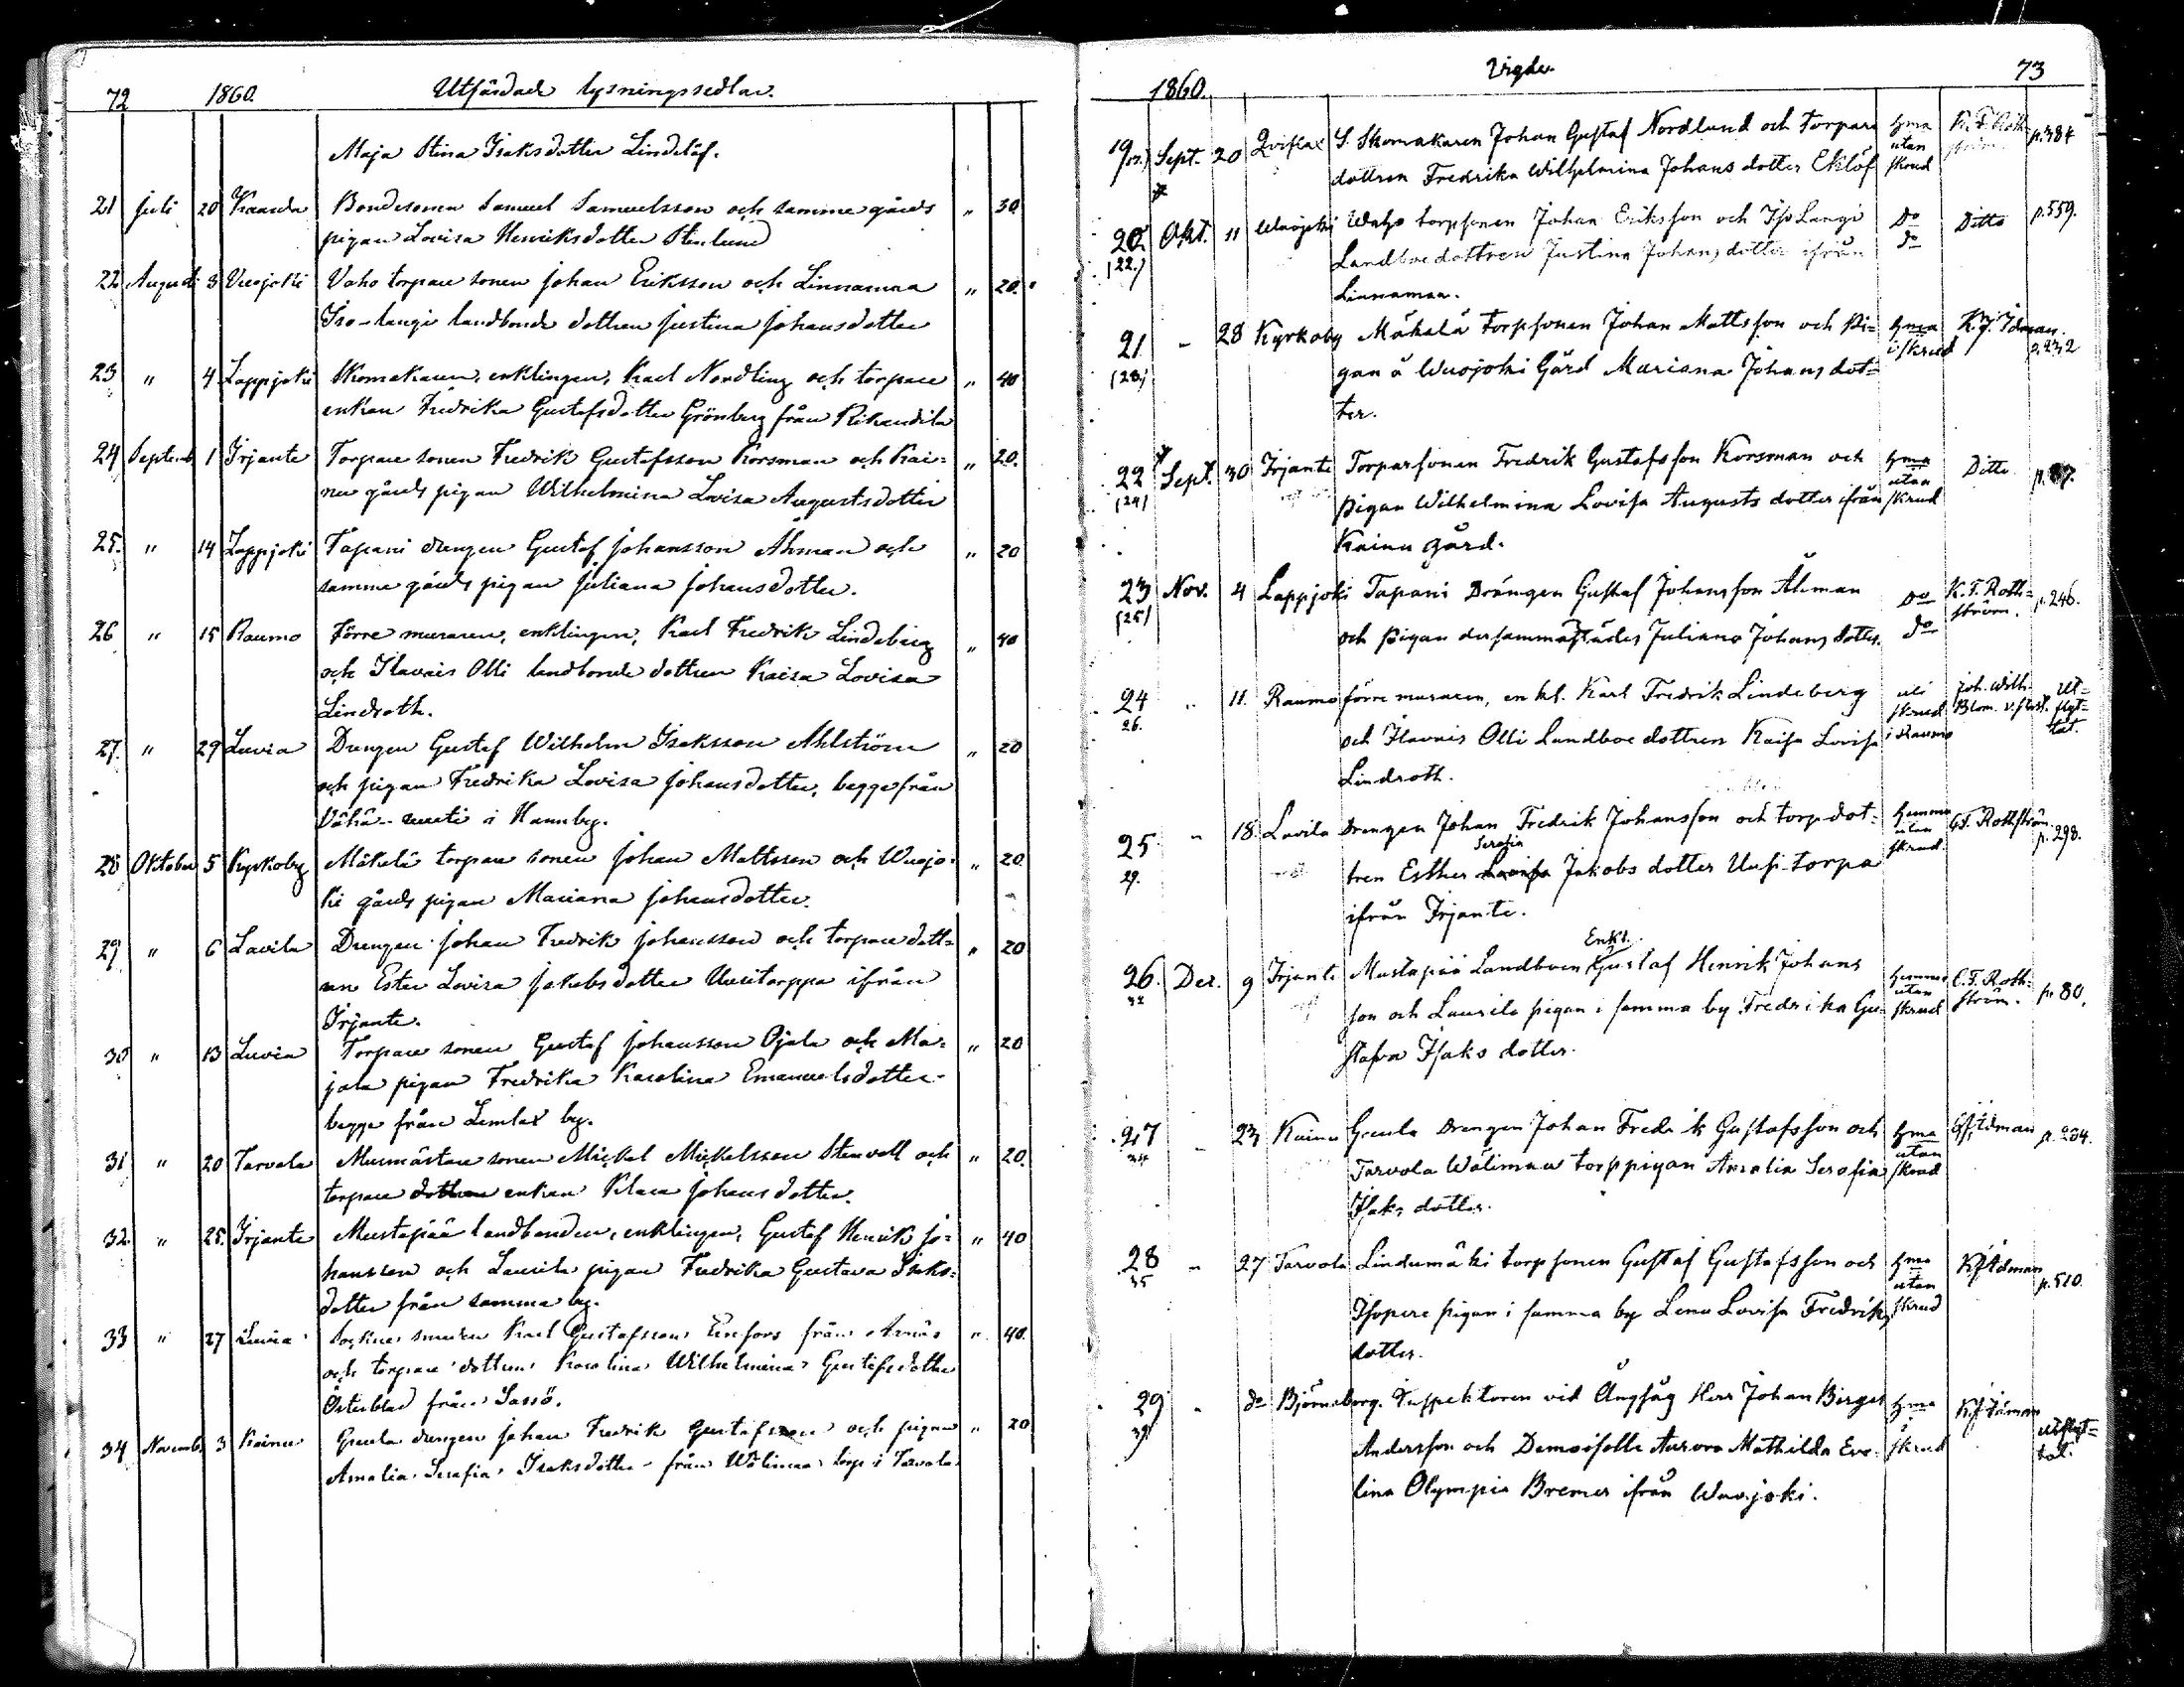 72 1860. Utfärdade lysningssedlar.
Maja Stina Isaksdotter Lindelöf.
21 Juli 20 Kaunda Bondesonen Samuel Samuelsson och samma gårds " 30
pigan Lovisa Henriksdotter Stenlund
22 Augusti 3 Vuojoki Vaho torpare sonen Johan Eriksson och Linnamaa " 20.
Iso-langi landbonde dottren Justina Johansdotter
23 " 4 Lappjoki Skomakaren, enklingen, Karl Nordling och torpare " 40
enkan Fredrika Gustafsdotter Grönberg från
24 Septemb. 1 Irjante Torpare sonen Fredrik Gustafsson Korsman och Kai= " 20.
nu gårds pigan Wilhelmina Lovisa Augustsdotter
25. " 14 Lappjoki Tapani drengen Gustaf Johansson Åhman och " 20
samma gårds pigan Juliana Johansdotter.
26 " 15 Raumo Förre muraren, enklingen, Karl Fredrik Lindeberg " 40
och Ilavais Olli landbonde dottren Kaisa Lovisa
Lindroth.
27. " 29 Luvia Drengen Gustaf Wilhelm Isaksson Ahlström " 20
och pigan Fredrika Lovisa Johansdotter, begge från
Vähä- i Hannby.
28 Oktober 5 Kyrkoby Mäkelä torpare sonen Johan Mattsson och Wuojo= " 20
ki gårds pigan Mariana Johansdotter.
29 " 6 Lavila Drengen Johan Fredrik Johansson och torpare dott= " 20
ren Ester Lovisa Jakobsdotter Uusitorppa ifrån
Irjante.
30 " 13 Luvia Torpare sonen Gustaf Johansson Ojala och Ma= " 20
jala pigan Fredrika Karolina Emanuelsdotter
begge från Lemlax by.
31 " 20 Tarvola Murmästare sonen Mickel Mickelsson Stenvall och " 20.
torpare dottren enkan Klara Johansdotter.
32 " 25. Irjante Mustapää landbonden, enklingen, Gustaf Henrik Jo= " 40
hansson och Laurila pigan Fredrika Gustava Isaks=
dotter från samma by.
33 " 27 Luvia Sockne smeden Karl Gustafsson Enfors från Arnäs " 40.
och torpare dottren Karolina Wilhelmina Gustafsdotter
Österblad från Sassö.
34 Novemb. 3 Kainu Greula drengen Johan Fredrik Gustafsson och pigan " 20
Amalia Serafia Isaksdotter från Wälimaa torp i Tarvola.
1860. Vigde. 73
19 Sept. 20 S. Skomakaren Johan Gustaf Nordlund och Torpare hma utan skrud K. F. Rothström p. 384
dottren Fredrika Wilhelmina Johans dotter Eklöf
20. (22.) Okt. 11 Wuojoki Waho torpsonen Johan Eriksson och Iso Langi Do do Ditto p. 559.
Landboe dottren Justina Johans dotter ifrån
Linnamaa.
21 (28.) " 28 Kyrkoby Mäkelä Torpsonen Johan Mattsson och Pi= hma i skrud K. J. Idman. p. 232
gan å Wuojoki Gård Mariana Johans dot=
ter.
22 (24) Sept. 30 Irjante Torparsonen Fredrik Gustafsson Korsman och hma utan skrud Ditto
pigan Wilhelmina Lovisa Augusts dotter ifrån
Kainu gård.
23 (25) Nov. 4 Lappjoki Tapani Drängen Gustaf Johansson Åhman Do do K. F. Roth=ström. p. 246.
och Pigan dersammastädes Juliana Johans dotter.
24 26. " 11. Raumo förre muraren, enkl. Karl Fredrik Lindeberg uti skrud i Raumo Joh. Wilh. Blom. v. past. Ut=flyt=tat.
och Ilavais Olli Landboe dottren Kaisa Lovisa
Lindroth.
25 29. " 18. Lavila Drengen Johan Fredrik Johansson och torp. dot= hemma utan skrud G. F. Rothström p. 298.
Serafia
tren Esther Lovisa Jakobs dotter Uusi-torpa
ifrån Irjante.
Enkl.
26. 32 Dec. 9 Irjante Mustapää Landboen Gustaf Henrik Johans hemma utan skrud C. F. Roth=ström. p. 80.
son och Laurila pigan i samma by Fredrika Gu=
stafva Isaks dotter.
27 34 " 23 Kainu Greula Drengen Johan Fredrik Gustafsson och hma utan skrud Idman p. 204.
Tarvola Wälimaa torppigan Amalia Serafia
Isaks dotter.
28 35 " 27 Tarvola Lindumäki torpsonen Gustaf Gustafsson och hma utan skrud K J Idman p. 510.
Isopere pigan i samma by Lena Lovisa Fredriks
dotter.
29 " do Björneborg. Inspektoren vid Ångsåg Herr Johan Birger hma i skrud K J Idman utflyt=tat.
Andersson och Demoiselle Aurora Mathilda Eve=
lina Olympia Bremer ifrån Wuojoki.